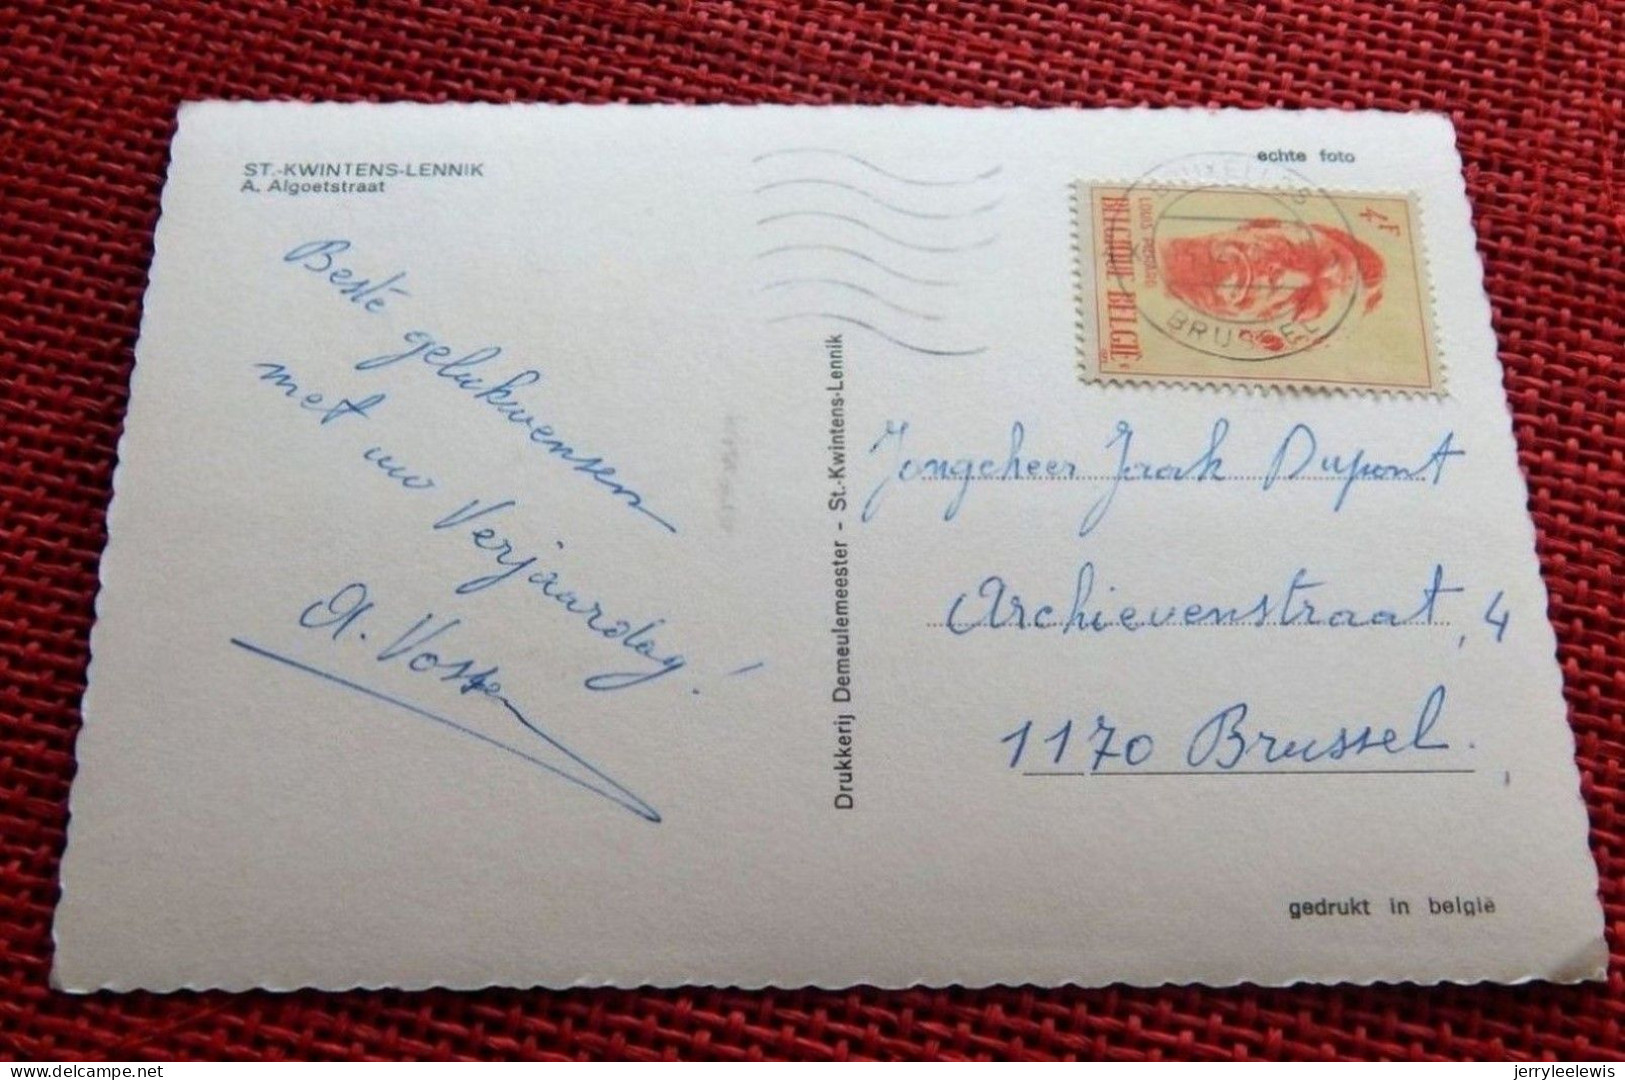 ST.-KWINTENS-LENNIK
A. Algoetstraat
echte foto
BRUXELLES
BRUSSEL
4F
LOUIS
BELGIQUE BELGIË
Beste gelukwensen
met uw Verjaardag!
A. Vossen
Drukkerij Demeulemeester - St.-Kwintens-Lennik
Jongeheer Jaak Dupont
Archievenstraat, 4
1170 Brussel.
gedrukt in belgië
delcampe.net
jerryleelewis